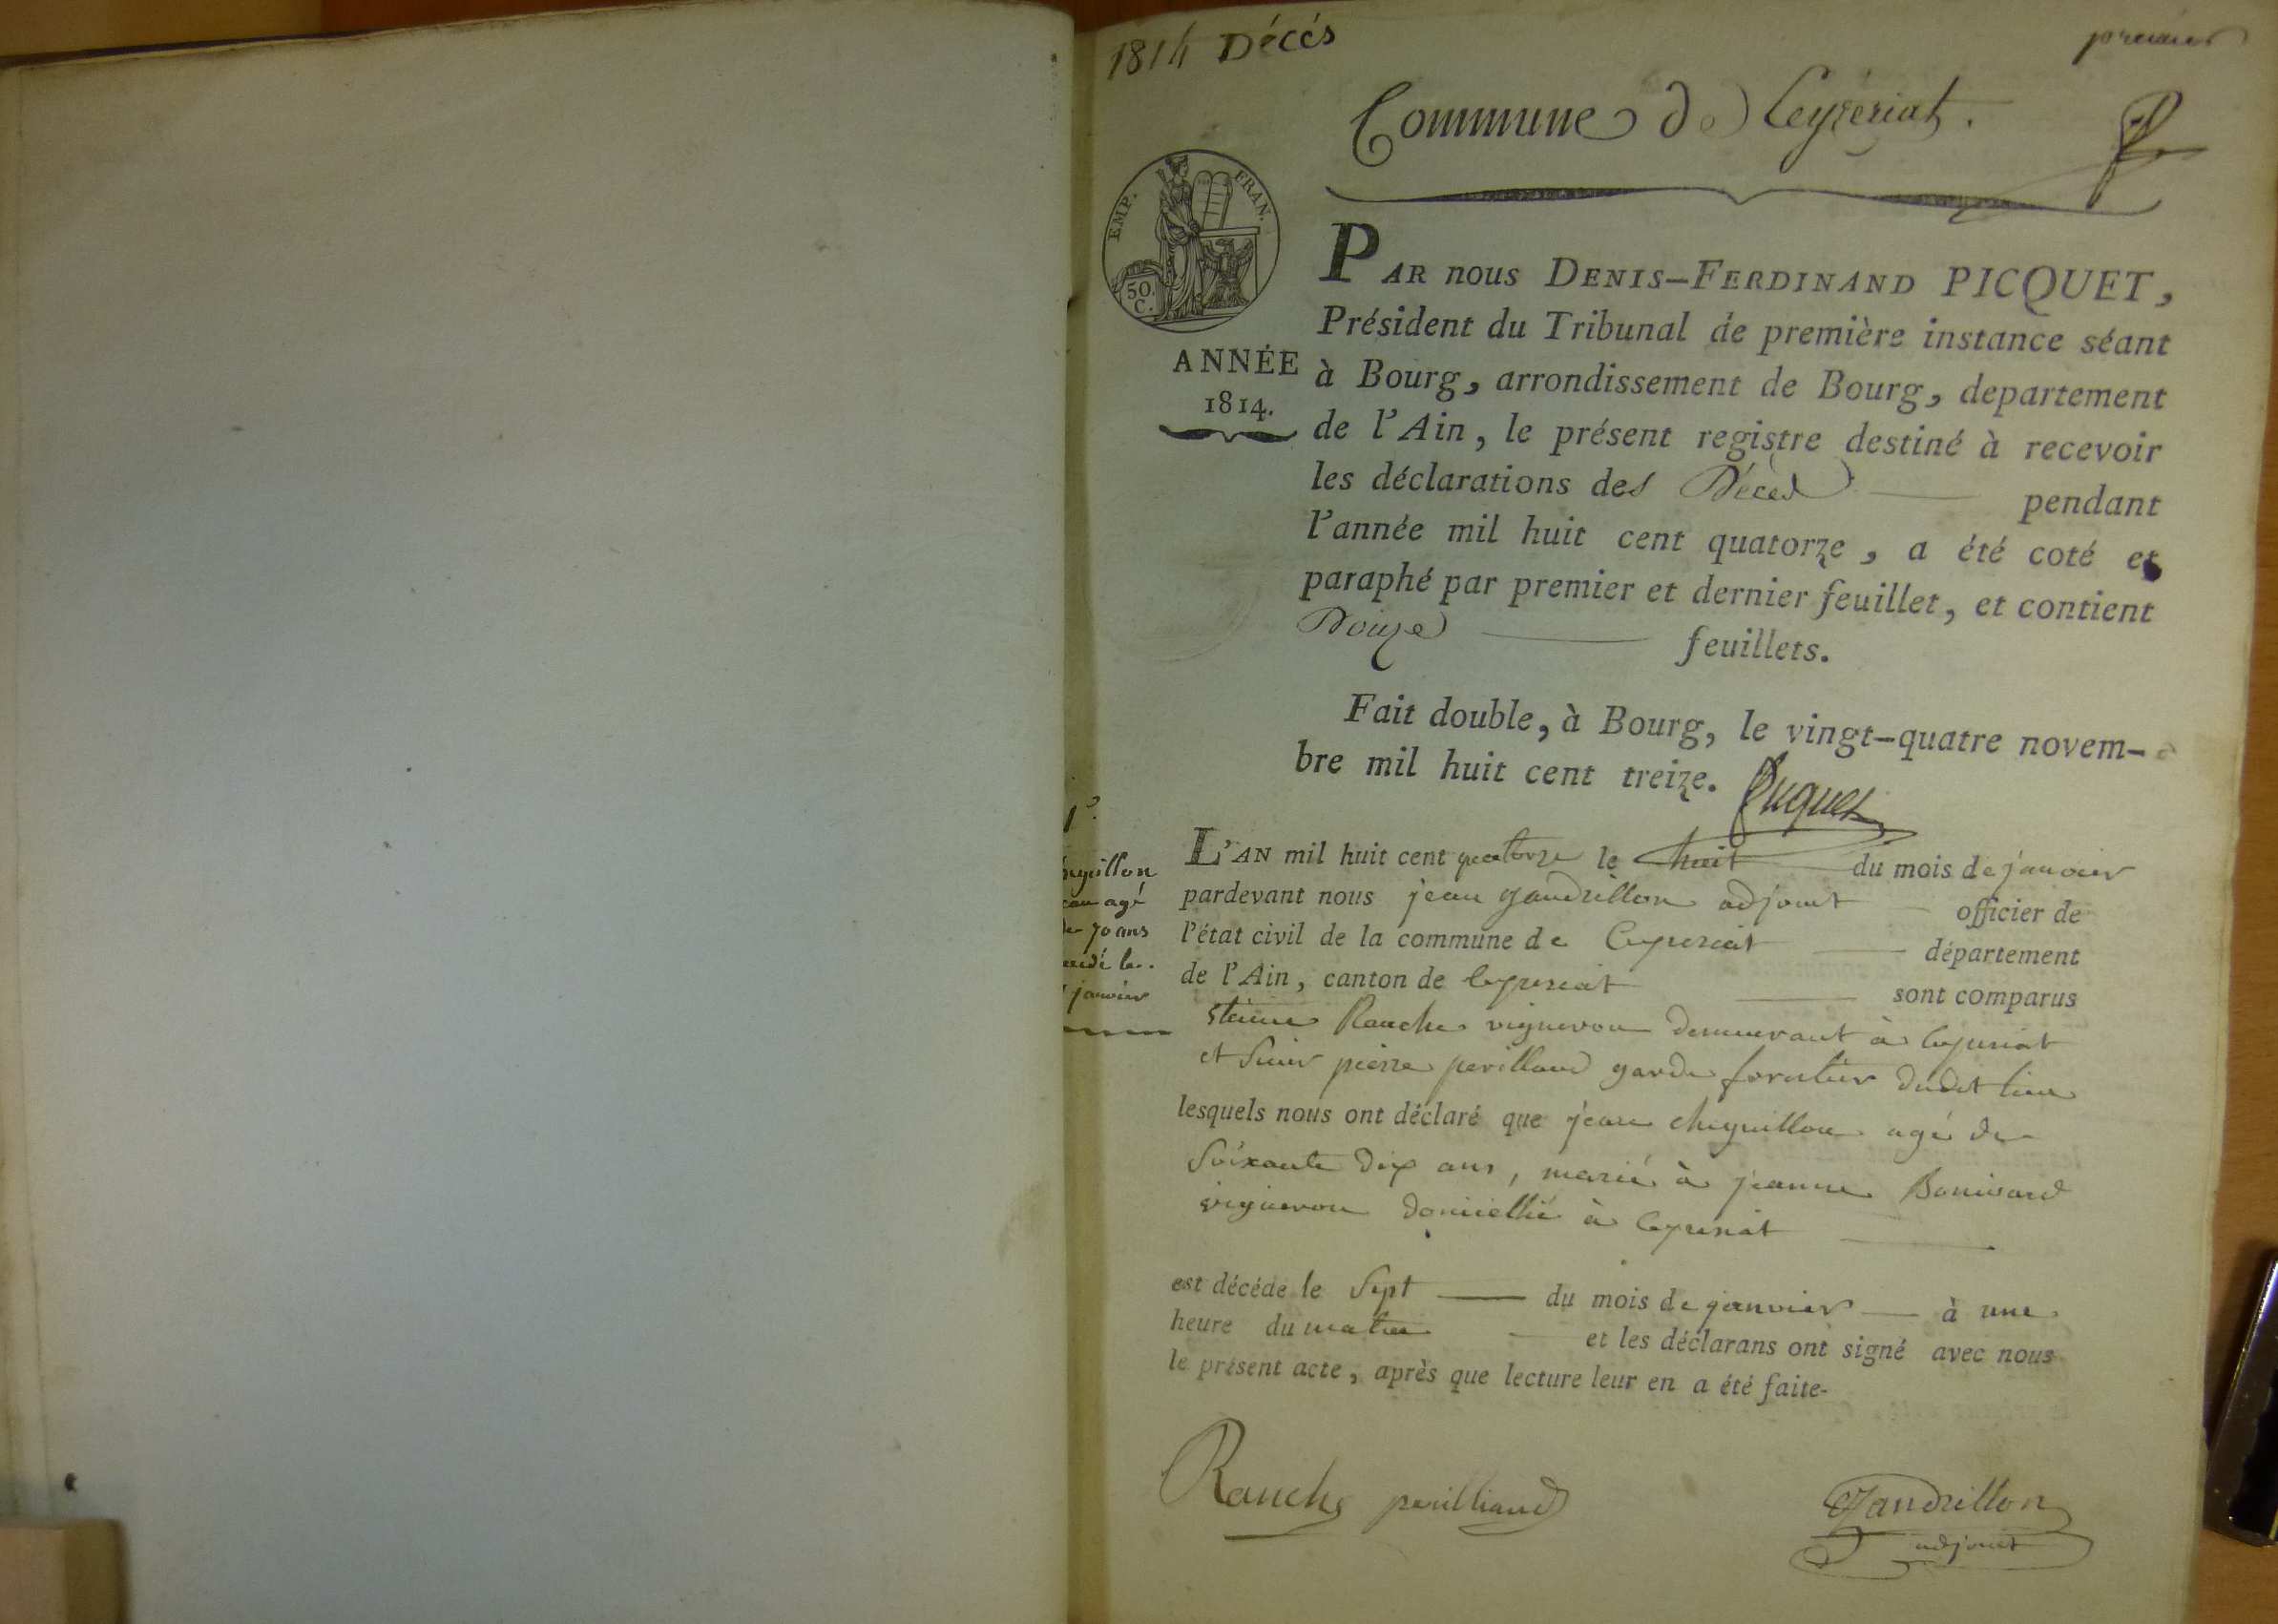 1814 Décés
premier
Commune de Ceyzériat.
EMP. FRAN.
50.
C.
ANNÉE
1814.
PAR nous DENIS-FERDINAND PICQUET,
Président du Tribunal de première instance séant
à Bourg, arrondissement de Bourg, departement
de l'Ain, le présent registre destiné à recevoir
les déclarations des Décès pendant
l'année mil huit cent quatorze, a été coté et
paraphé par premier et dernier feuillet, et contient
Douze feuillets.
Fait double, à Bourg, le vingt-quatre novem-
bre mil huit cent treize. Picquet
1°.
guillon
agé
de 70 ans
le
janvier
L'AN mil huit cent quatorze le huit du mois de janvier
pardevant nous jean gandrillon adjoint officier de
l'état civil de la commune de Ceyzeriat département
de l'Ain, canton de Ceyzeriat sont comparus
Rauche vigneron demeurant à Ceyzeriat
et Sieur pierre perilland garde forestier dudit lieu
lesquels nous ont déclaré que jean cheguillon agé de
Soixante dix ans, marié à jeanne Bonivard
vigneron domicillié à Ceyzeriat
est décédé le Sept du mois de janvier à une
heure du matin et les déclarans ont signé avec nous
le présent acte, après que lecture leur en a été faite-
Rauche perilliand Gandrillon
adjoint